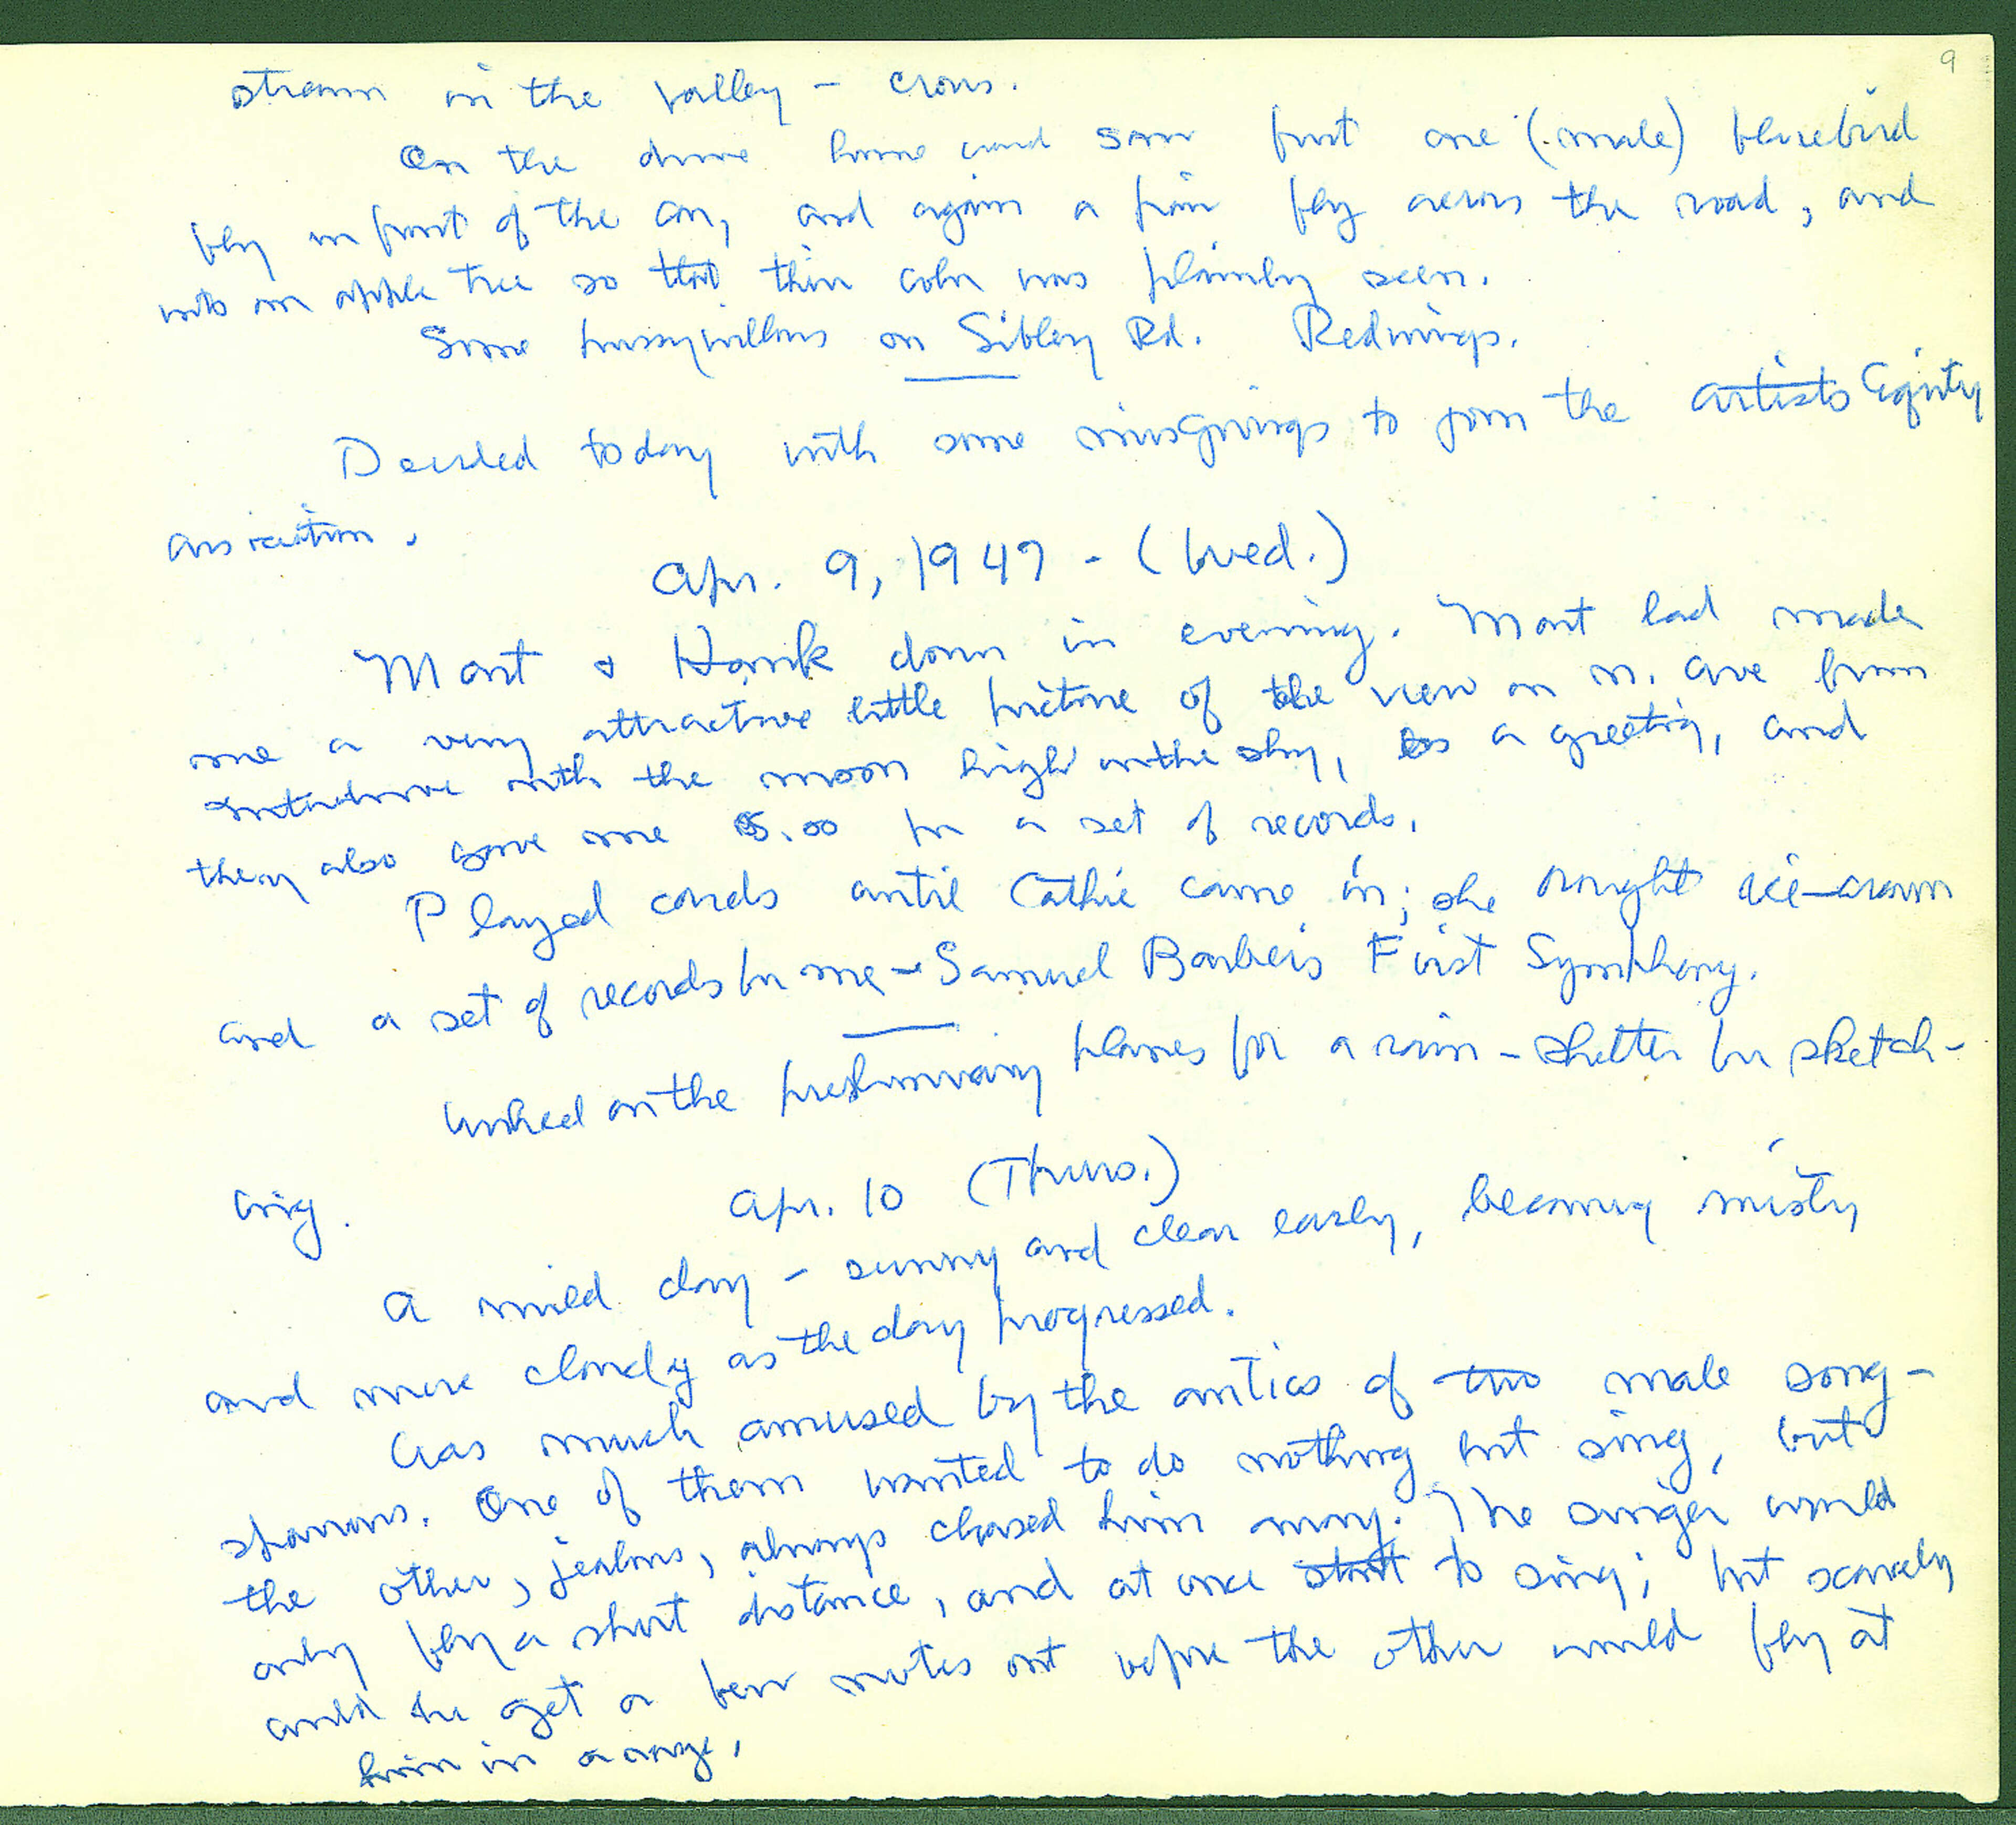 9
stream in the valley – crows.
On the drive home saw first one (male) bluebird
fly in front of the car, and again a pair fly across the road, and
into an apple tree so that their color was plainly seen.
Some pussywillows on Sibley Rd. Redwings.
Decided today with some misgivings to join the Artists Equity
association.
Apr. 9, 1947 – (Wed.)
Mart & Hank down in evening. Mart had made
me a very attractive little picture of the view on N. Ave from
with the moon high in the sky, as a greeting, and
they also gave me 5.00 for a set of records.
Played cards until Cathie came in; she brought ice-cream
and a set of records for me – Samuel Barber's First Symphony.
Worked on the preliminary planes for a rain-shelter for sketch-
ing.
Apr. 10 (Thurs.)
A mild day – sunny and clear early, becoming misty
and more cloudy as the day progressed.
Was much amused by the antics of two male song-
sparrows. One of them wanted to do nothing but sing, but
the other, jealous, always chased him away. The singer would
only fly a short distance, and at once start to sing; but scarcely
could he get a few notes out before the other would fly at
him in a rage.